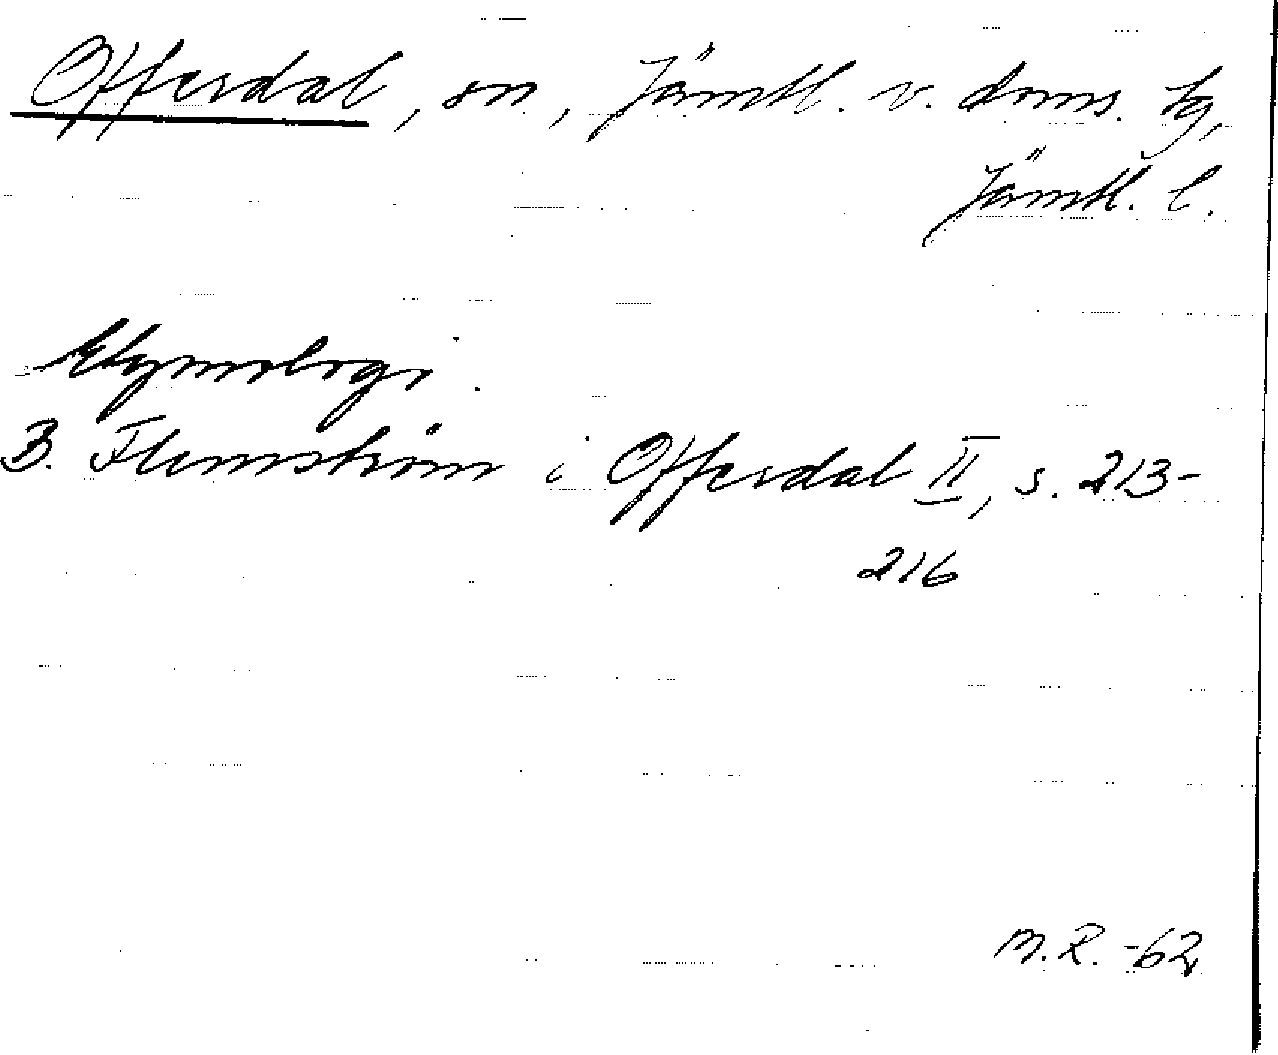 Offerdal, sn, Jämtl. v. doms. tg,
Jämtl. l.
Etymologi:
B. Flemström i Offerdal II, s. 213-
216
M.R. -62